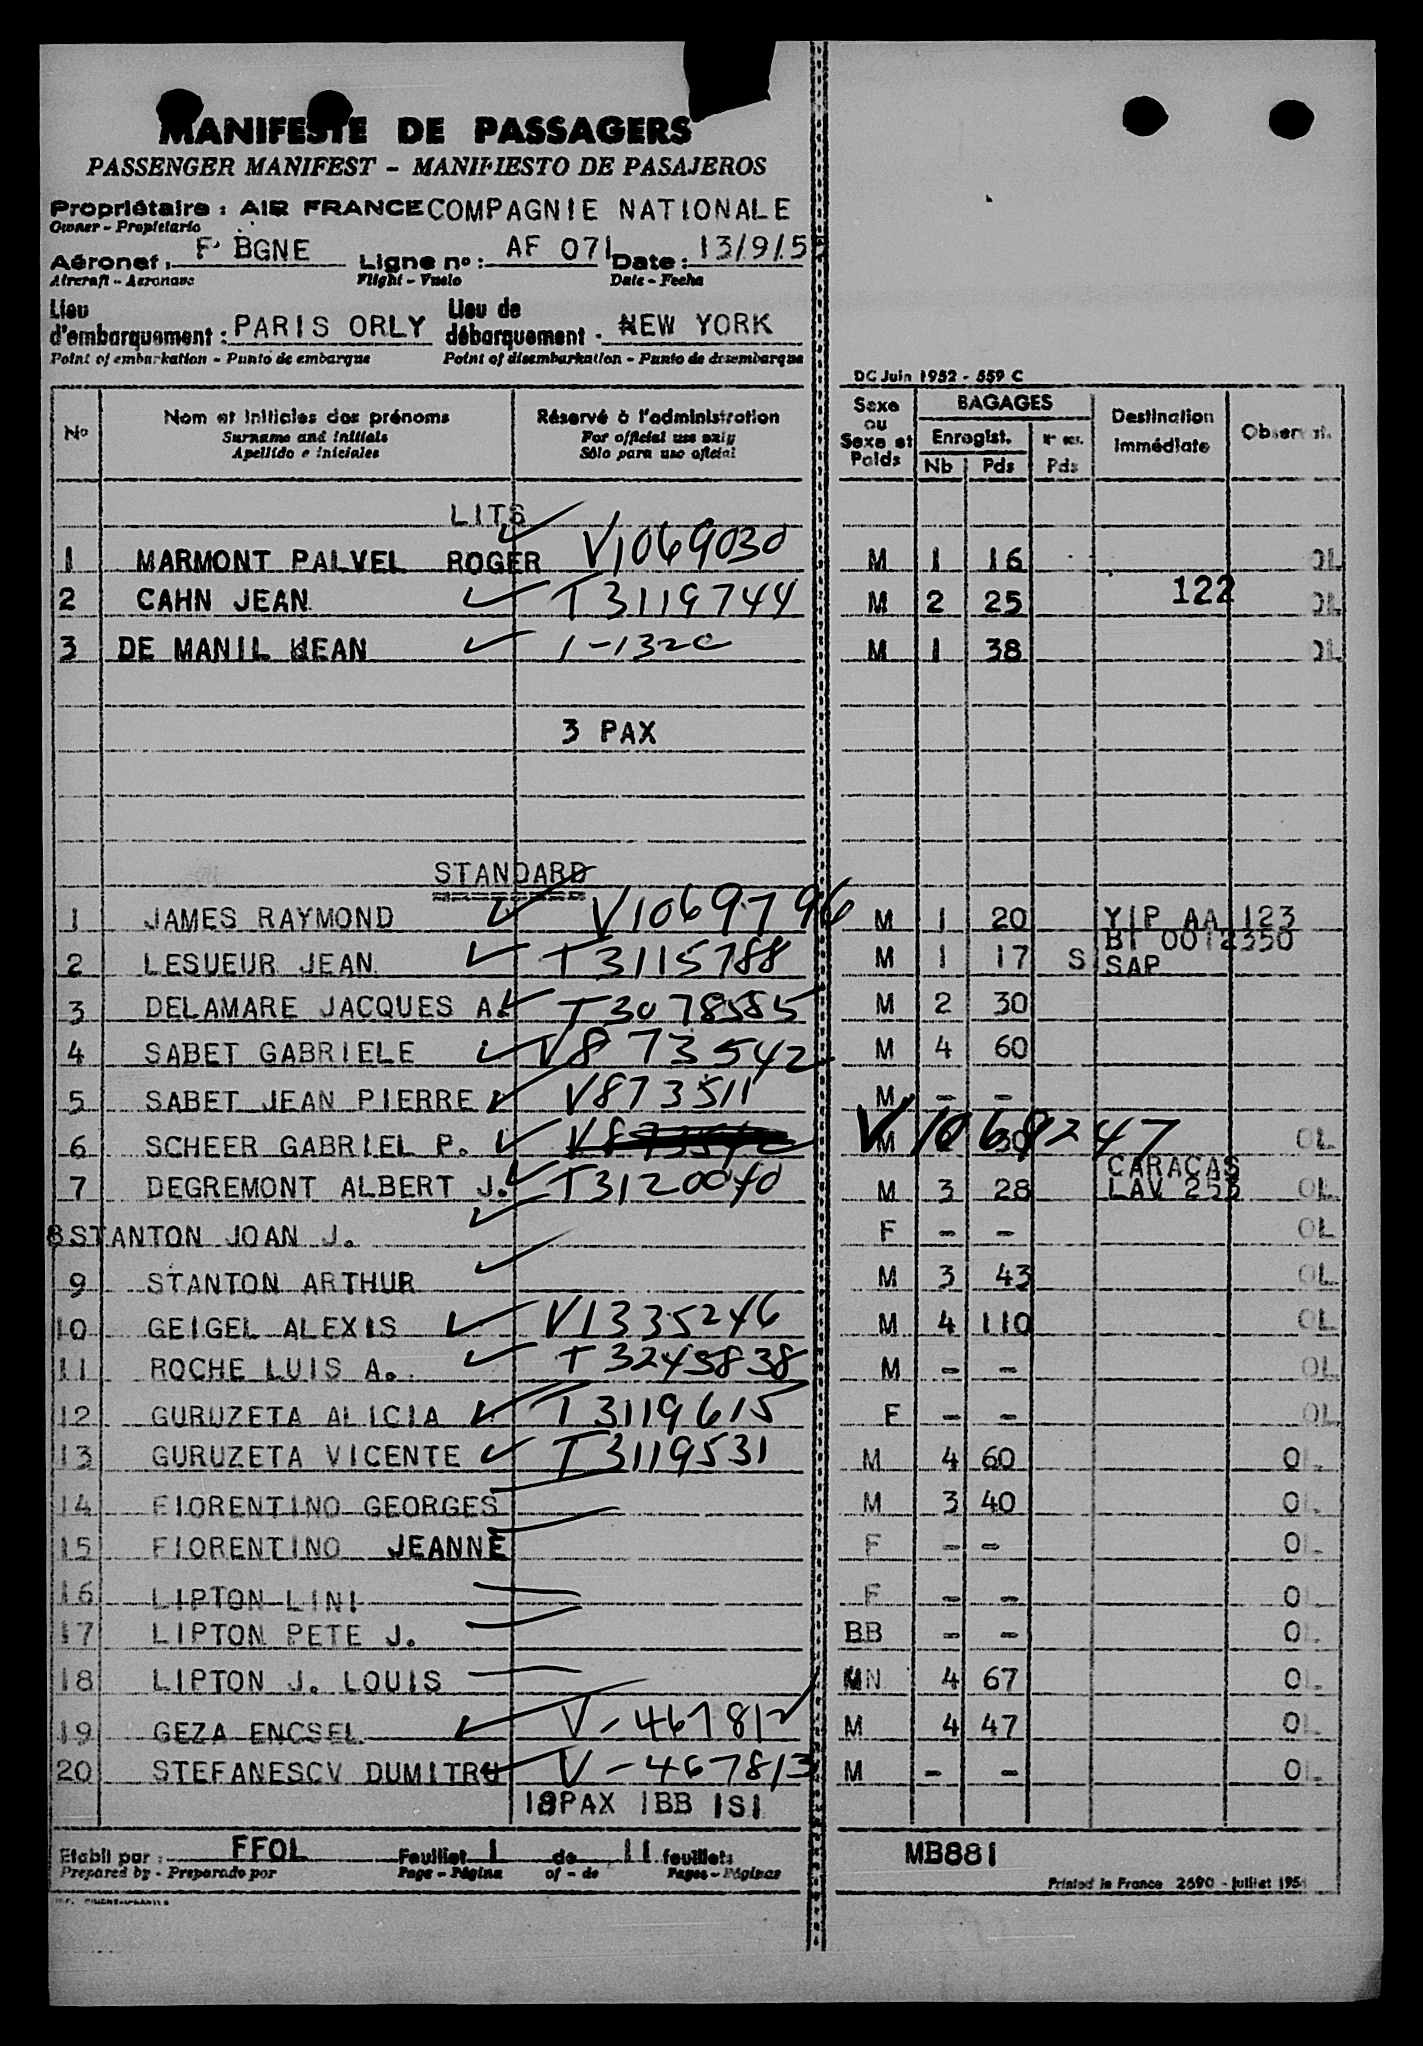 MANIFESTE DE PASSAGERS
PASSENGER MANIFEST - MANIFIESTO DE PASAJEROS
Propriétaire : AIR FRANCE COMPAGNIE NATIONALE
Owner - Propietario
Aéronef : F BGNE Ligne no : AF 071 Date : 13/9/5
Aircraft - Aeronave Flight - Vuelo Date - Fecha
Lieu d'embarquement : PARIS ORLY Lieu de débarquement - NEW YORK
Point of embarkation - Punto de embarque Point of disembarkation - Punto de desembarque
DC Juin 1952 - 559 C
No Nom et initiales des prénoms Réservé à l'administration Sexe ou Sexe et Poids BAGAGES Destination immédiate Observat.
Surname and initials For official use only Enregist.
Apellido e iniciales Sólo para uso oficial Nb Pds Pds
LITS
1 MARMONT PALVEL ROGER V1069030 M 1 16 OL
2 CAHN JEAN T3119744 M 2 25 122 OL
3 DE MANIL JEAN 1-132C M 1 38 OL
3 PAX
STANDARD
1 JAMES RAYMOND V1069796 M 1 20 YIP AA 123
BT 0012350
2 LESUEUR JEAN T3115788 M 1 17 S SAP
3 DELAMARE JACQUES A. T3078585 M 2 30
4 SABET GABRIELE V873542 M 4 60
5 SABET JEAN PIERRE V873511 M - -
6 SCHEER GABRIEL P. V1068247 M 30 OL
7 DEGREMONT ALBERT J. T3120040 M 3 28 CARACAS LAV 253 OL
8 STANTON JOAN J. F - - OL
9 STANTON ARTHUR M 3 43 OL
10 GEIGEL ALEXIS V1335246 M 4 110 OL
11 ROCHE LUIS A. T3245838 M - - OL
12 GURUZETA ALICIA T3119615 F - - OL
13 GURUZETA VICENTE T3119531 M 4 60 OL
14 FIORENTINO GEORGES M 3 40 OL
15 FIORENTINO JEANNE F - - OL
16 LIPTON LINI F - - OL
17 LIPTON PETE J. BB - - OL
18 LIPTON J. LOUIS MN 4 67 OL
19 GEZA ENCSEL V-467812 M 4 47 OL
20 STEFANESCV DUMITRU V-467813 M - - OL
18PAX 1BB 1S1
Etabli par : FFOL Feuillet 1 de 11 feuillets MB881
Prepared by - Preparado por Page - Página of - de Pages - Páginas
Printed in France 2690 - Juillet 195